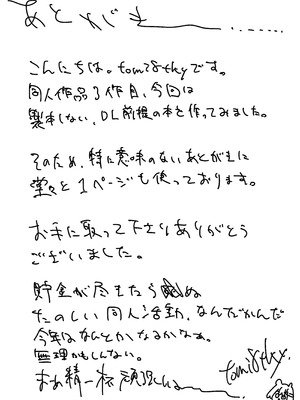 あとがき
こんにちは。tomi8thyです。
同人作品3作目、今回は
製本しない、DL前提の本を作ってみました。
そのため、特に意味のないあとがきに
堂々と1ページも使っております。
お手に取って下さりありがとう
ございました。
貯金が尽きたら死ぬ
たのしい同人活動、なんだかんだ
今年はなんとかなるかなぁ。
無理かもしんない。
まあ精一杯頑張るしー
tomi8thy.